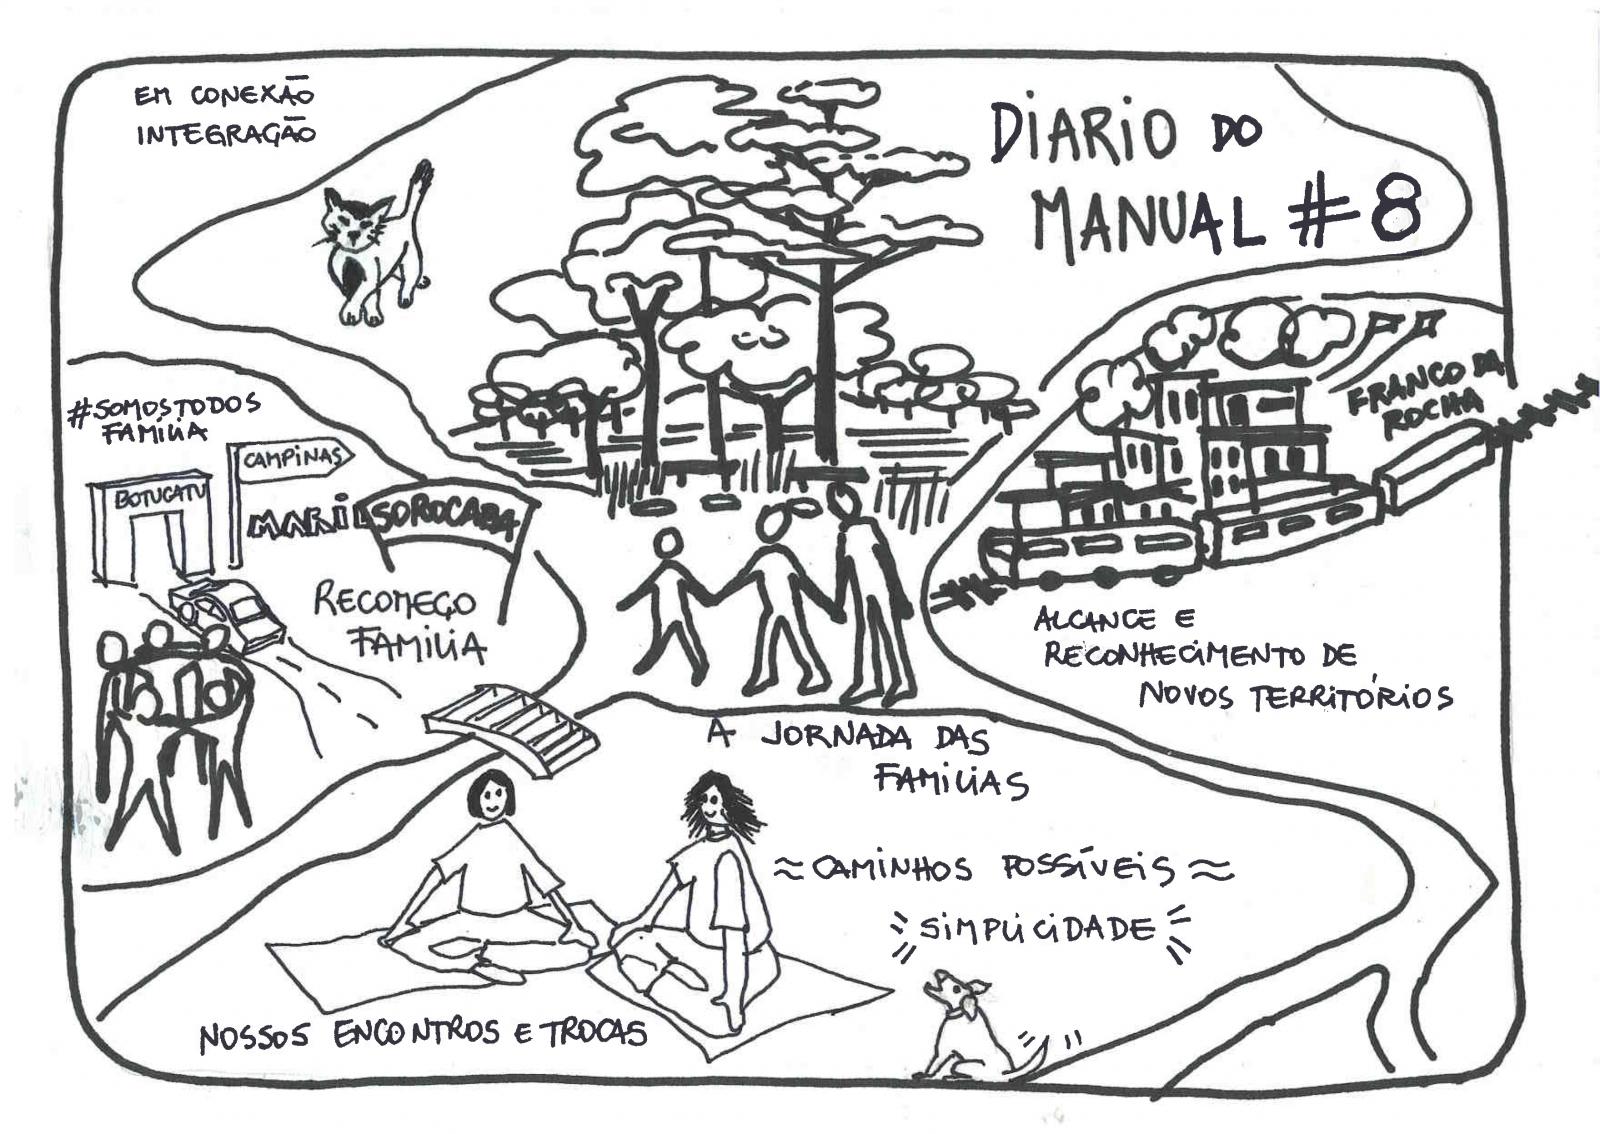 EM CONEXÃO
INTEGRAÇÃO
DIARIO DO
MANUAL #8
#SOMOSTODOS
FAMÍLIA
CAMPINAS
BOTUCATU
MARIL
SOROCABA
RECOMEÇO
FAMÍLIA
FRANCO DA
ROCHA
ALCANCE E
RECONHECIMENTO DE
NOVOS TERRITÓRIOS
A JORNADA DAS
FAMÍLIAS
≈CAMINHOS POSSÍVEIS≈
SIMPLICIDADE
NOSSOS ENCONTROS E TROCAS